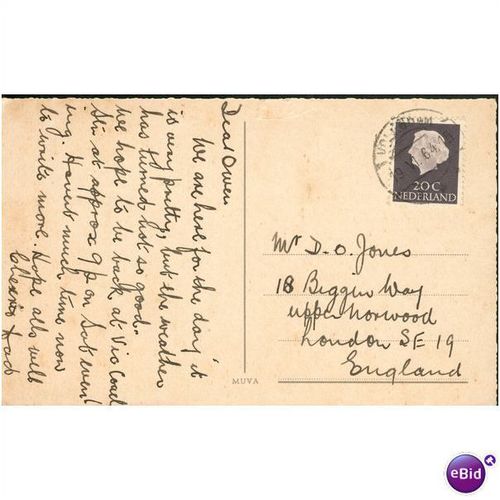 Dear Owen
We are here for the day it
is very pretty, but the weather
has turned not so good.
We hope to be back at Vic Coach
Stn at approx 9 p on Sat even
ing. Havent much time now
to write more. Hope alls well
Cheerio
MUVA
20 C
NEDERLAND
Mr D. O. Jones
18 Biggin Way
upper Norwood
London SE 19
England
eBid